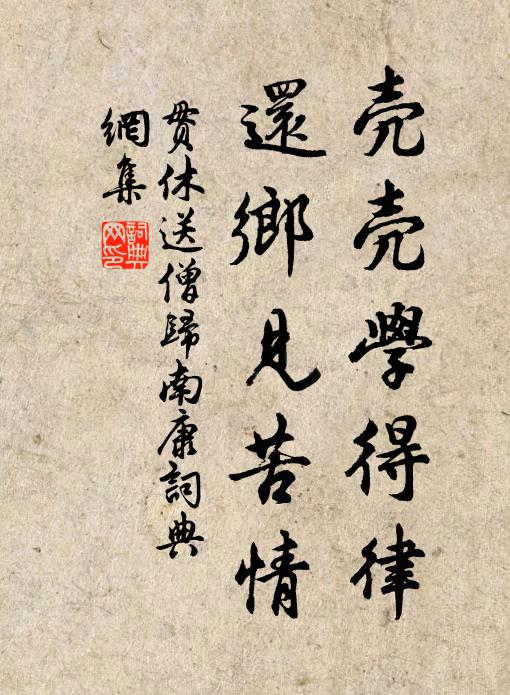 売売學得律
還鄉見苦情
貫休送僧歸南康詞典
網集
詞典
网印